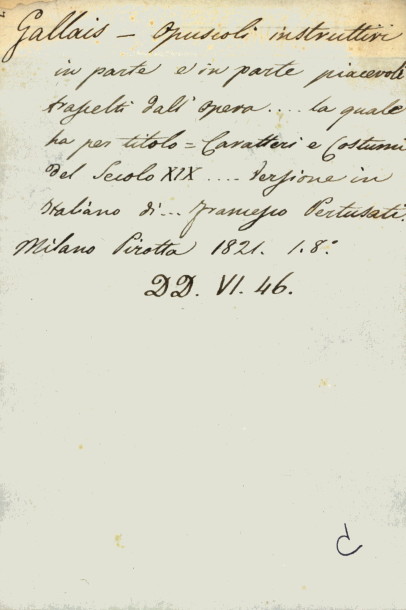 Gallais - Opuscoli instruttivi
in parte e in parte piacevoli
trascelti dall' opera .... la quale
ha per titolo = Caratteri e Costumi
del Secolo XIX .... Versione in
Italiano di ... Francesco Pertusati.
Milano Pirotta 1821. 1. 8.°
DD. VI. 46.